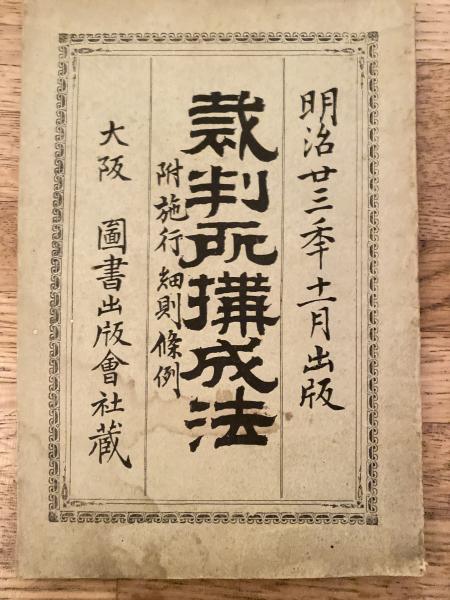 明治廿三年十一月出版
裁判所構成法
附施行細則條例
大阪 圖書出版會社藏